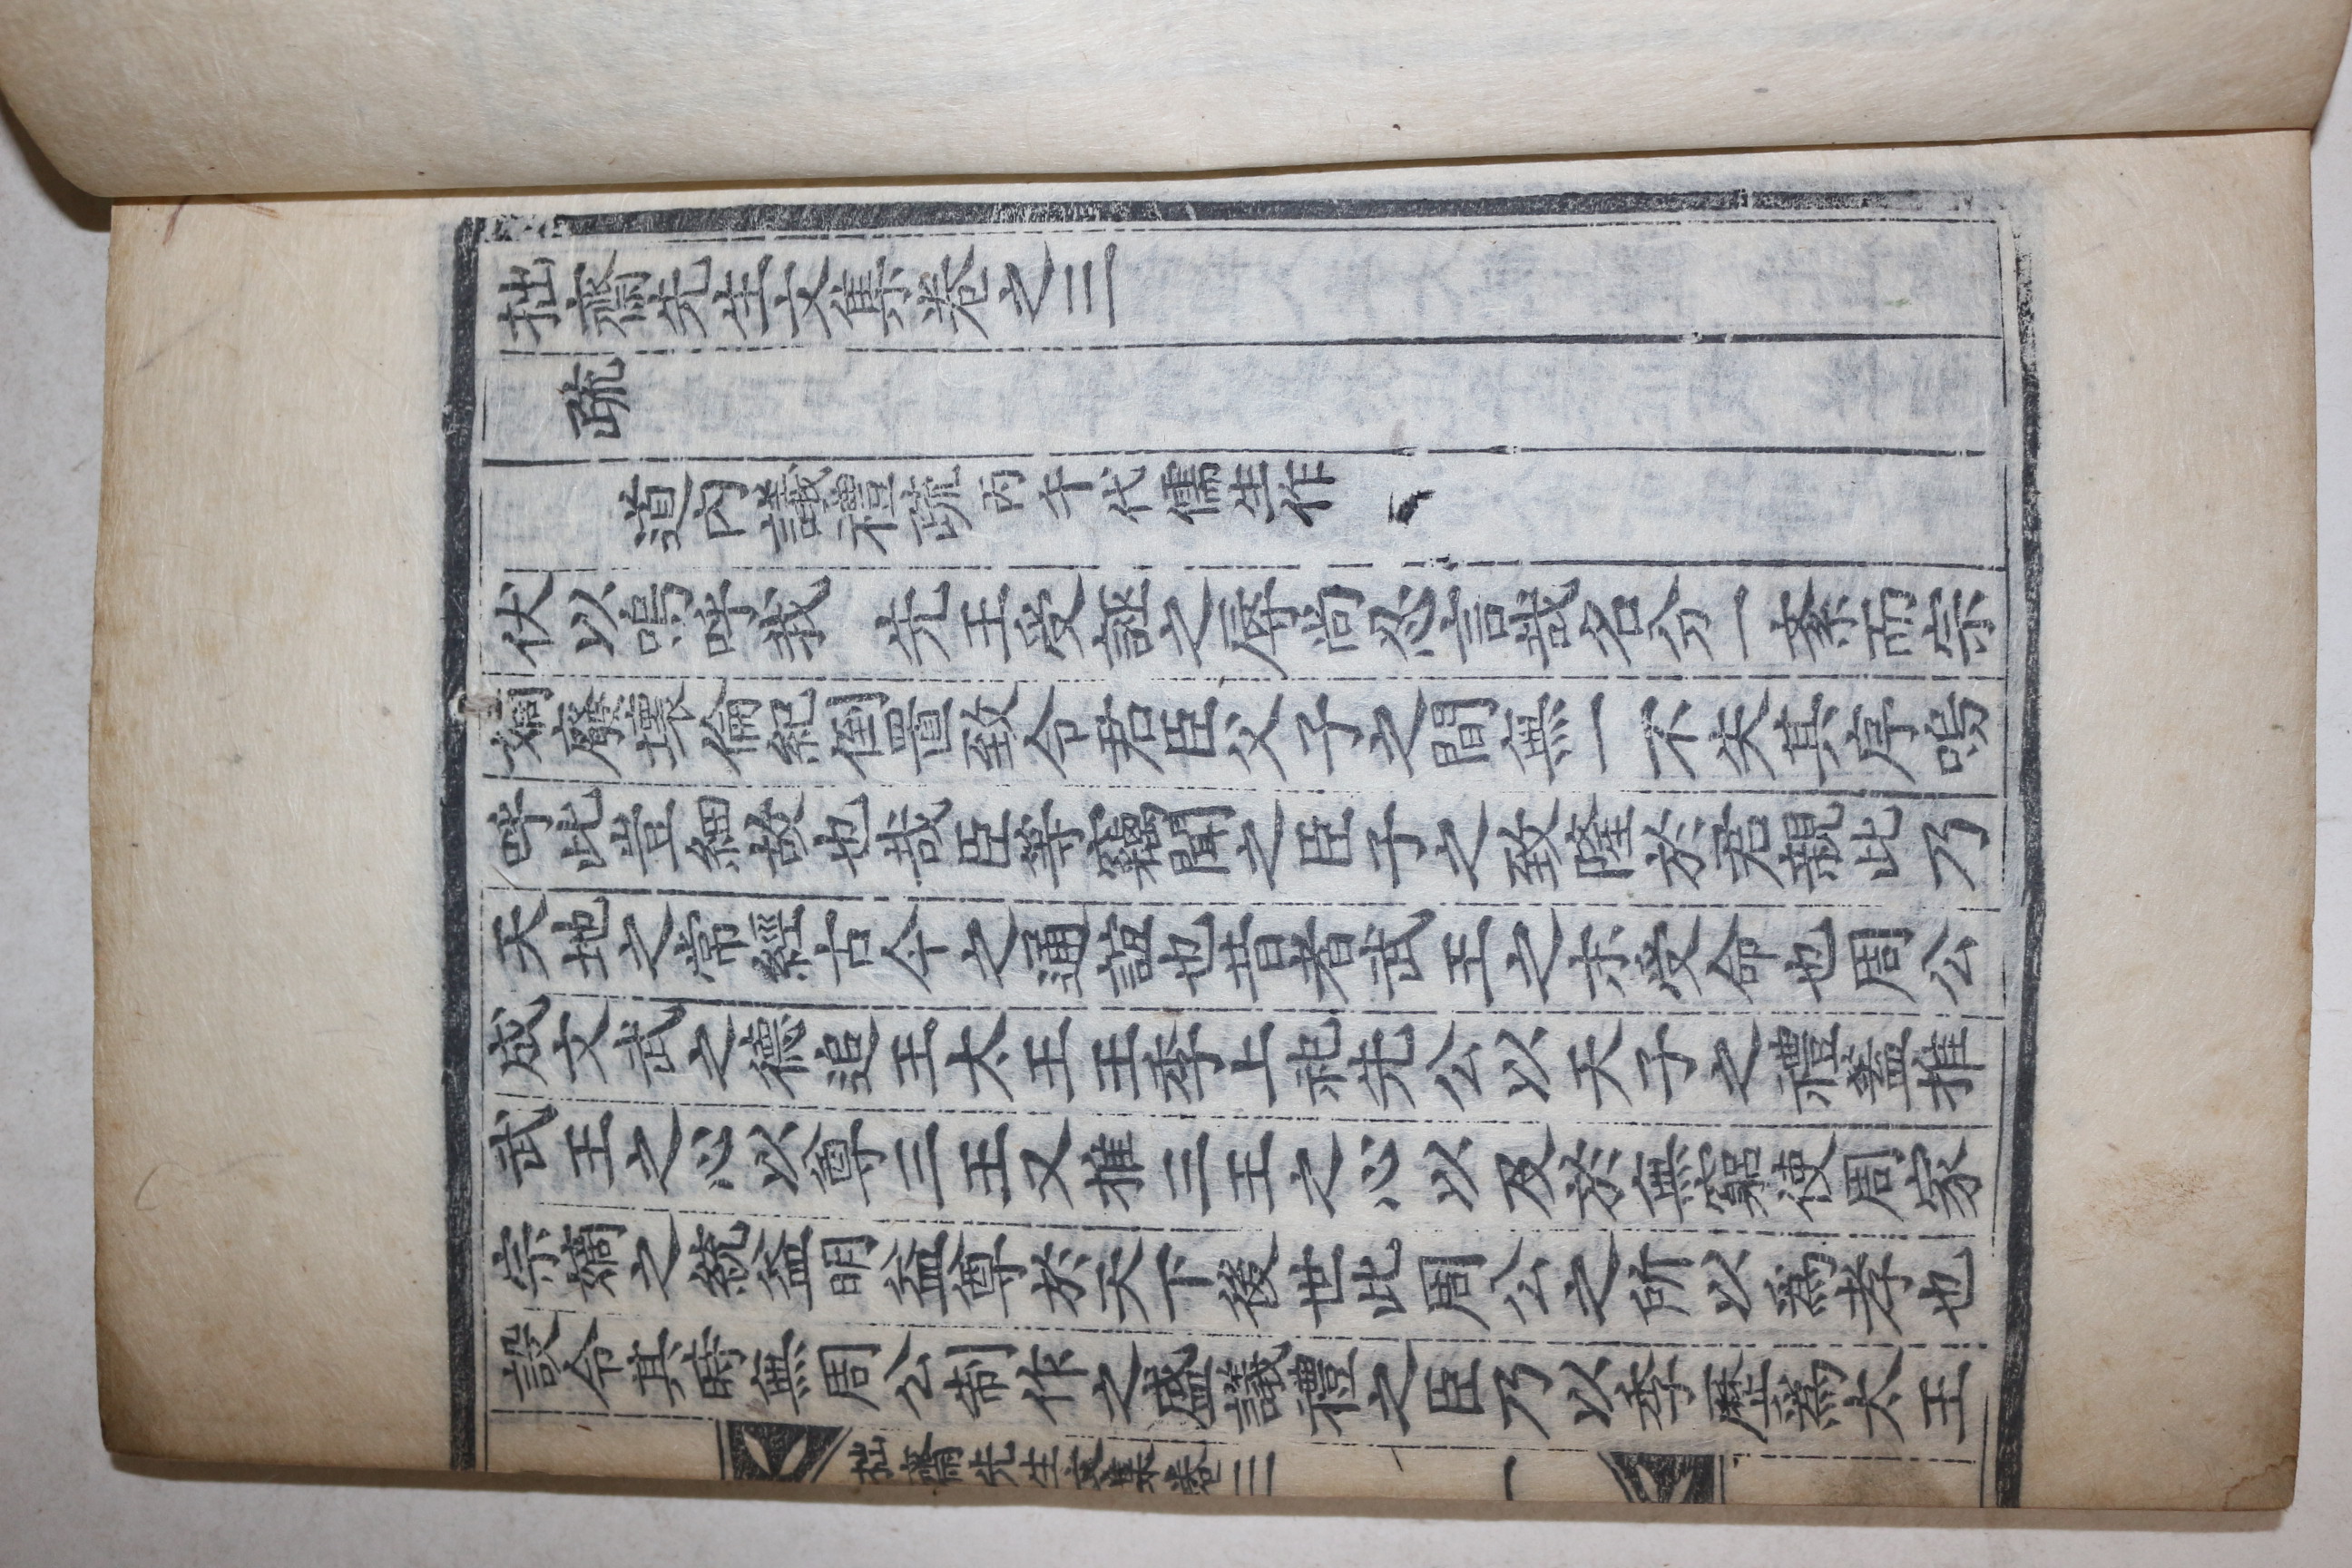 拙齋先生文集卷之三
疏
道內議禮疏 丙午代儒生作
伏以嗚呼我 先王受誣之辱尚忍言哉名分一紊而宗
嫡廢壞倫紀倒置致令君臣父子之間無一不失其序嗚
呼此豈細故也哉臣等竊聞之臣子之致隆於君親此乃
天地之常經古今之通誼也昔者武王之末受命也周公
成文武之德追王太王王季上祀先公以天子之禮蓋推
武王之心以尊三王又推三王之心以及於無窮使周家
宗嫡之統益明益尊於天下後世此周公之所以爲孝也
設令其時無周公制作之盛議禮之臣乃以季歷爲太王
拙齋先生文集卷三 一